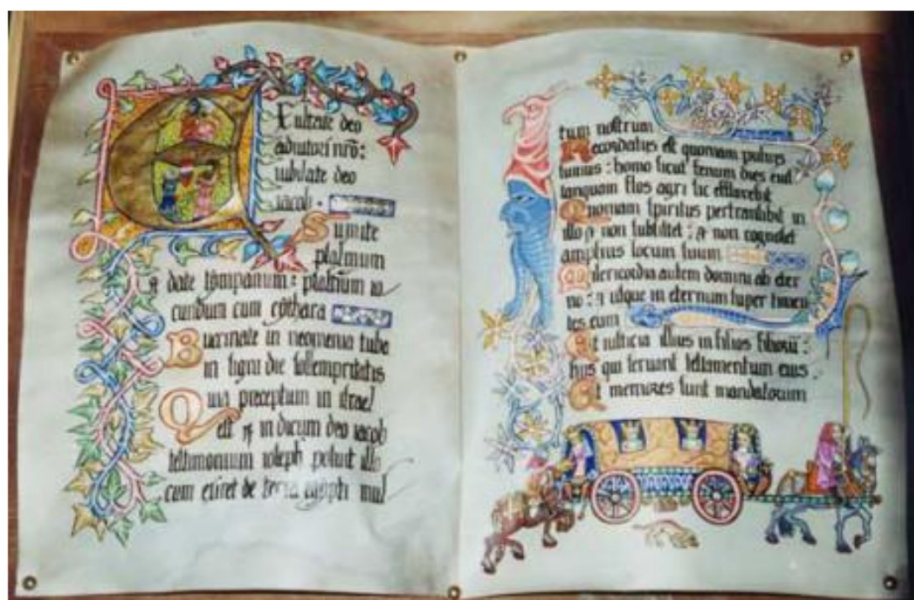 Exultate deo
adiutori nro:
iubilate deo
iacob.
Sumite
psalmum
& date tympanum: psalterium io
cundum cum cythara
Buccinate in neomenia tuba
in signi die sollempnitatis
Quia preceptum in israel
est & iudicium deo iacob
testimonium ioseph posuit illo
cum exiret de terra egypti
tum nostrum
Recordatus est quoniam pulvis
sumus: homo sicut fenum dies eius
tanquam flos agri sic efflorebit
Quoniam spiritus pertransibit in
illo & non subsistet: & non cognoscet
amplius locum suum
Misericordia autem domini ab eter
no: & usque in eternum super timen
tes eum
Et iusticia illius in filios filiorum:
hiis qui servant testamentum eius.
Et memores sunt mandatorum